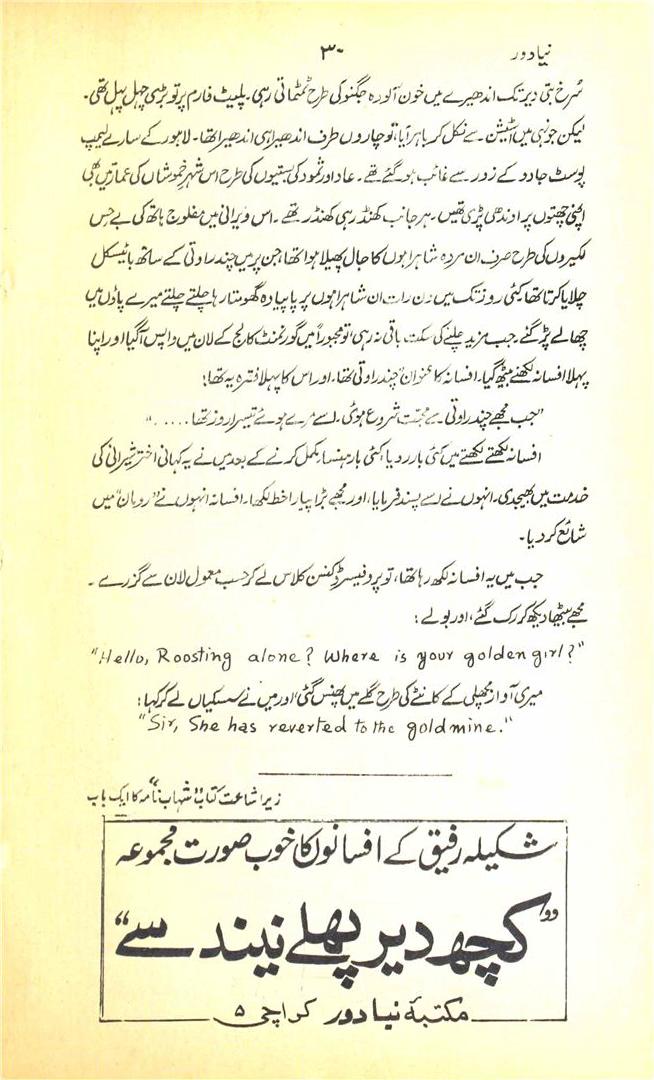 نیا دور
۳۰
سُرخ بتی دیر تک اندھیرے میں خون آلودہ جگنو کی طرح ٹمٹماتی رہی۔ پلیٹ فارم پر تو بڑی چہل پہل تھی۔
لیکن جونہی میں اسٹیشن سے نکل کر باہر آیا، تو چاروں طرف اندھیرا ہی اندھیرا تھا۔ لاہور کے سارے لیمپ
پوسٹ جادو کے زور سے غائب ہو گئے تھے۔ عاد اور ثمود کی بستیوں کی طرح اس شہرِ خموشاں کی عمارتیں بھی
اپنی چھتوں پر اوندھی پڑی تھیں۔ ہر جانب کھنڈر ہی کھنڈر تھے۔ اس ویرانی میں مفلوج ہاتھ کی بے حِس
لکیروں کی طرح صرف ان مردہ شاہراہوں کا جال پھیلا ہوا تھا، جن پر میں چندراوتی کے ساتھ بائیسکل
چلایا کرتا تھا۔ کئی روز تک میں دن رات ان شاہراہوں پر پاپیادہ گھومتا رہا۔ چلتے چلتے میرے پاؤں میں
چھالے پڑ گئے۔ جب مزید چلنے کی سکت باقی نہ رہی، تو مجبوراً میں گورنمنٹ کالج کے لان میں واپس آگیا اور اپنا
پہلا افسانہ لکھنے بیٹھ گیا۔ افسانہ کا عنوان "چندراوتی" تھا۔ اور اس کا پہلا فقرہ یہ تھا:
"جب مجھے چندراوتی سے محبت شروع ہوئی۔ اسے مرے ہوئے تیسرا روز تھا . . . . . "
افسانہ لکھتے لکھتے میں کئی بار رویا، کئی بار ہنسا۔ مکمل کرنے کے بعد میں نے یہ کہانی اختر شیرانی کی
خدمت میں بھیجدی۔ انہوں نے اسے پسند فرمایا، اور مجھے بڑا پیارا خط لکھا۔ افسانہ انہوں نے "رومان" میں
شائع کر دیا۔
جب میں یہ افسانہ لکھ رہا تھا، تو پروفیسر ڈکنسن کلاس لے کر حسب معمول لان سے گزرے۔
مجھے بیٹھا دیکھ کر رک گئے، اور بولے:
"Hello, Roosting alone? Where is your golden girl?"
میری آواز مچھلی کے کانٹے کی طرح گلے میں پھنس گئی، اور میں نے سسکیاں لے کر کہا:
"Sir, She has reverted to the goldmine."
زیر اشاعت کتاب "شہاب نامہ" کا ایک باب
شکیلہ رفیق کے افسانوں کا خوب صورت مجموعہ
"کچھ دیر پہلے نیند سے"
مکتبۂ نیا دور کراچی ۵